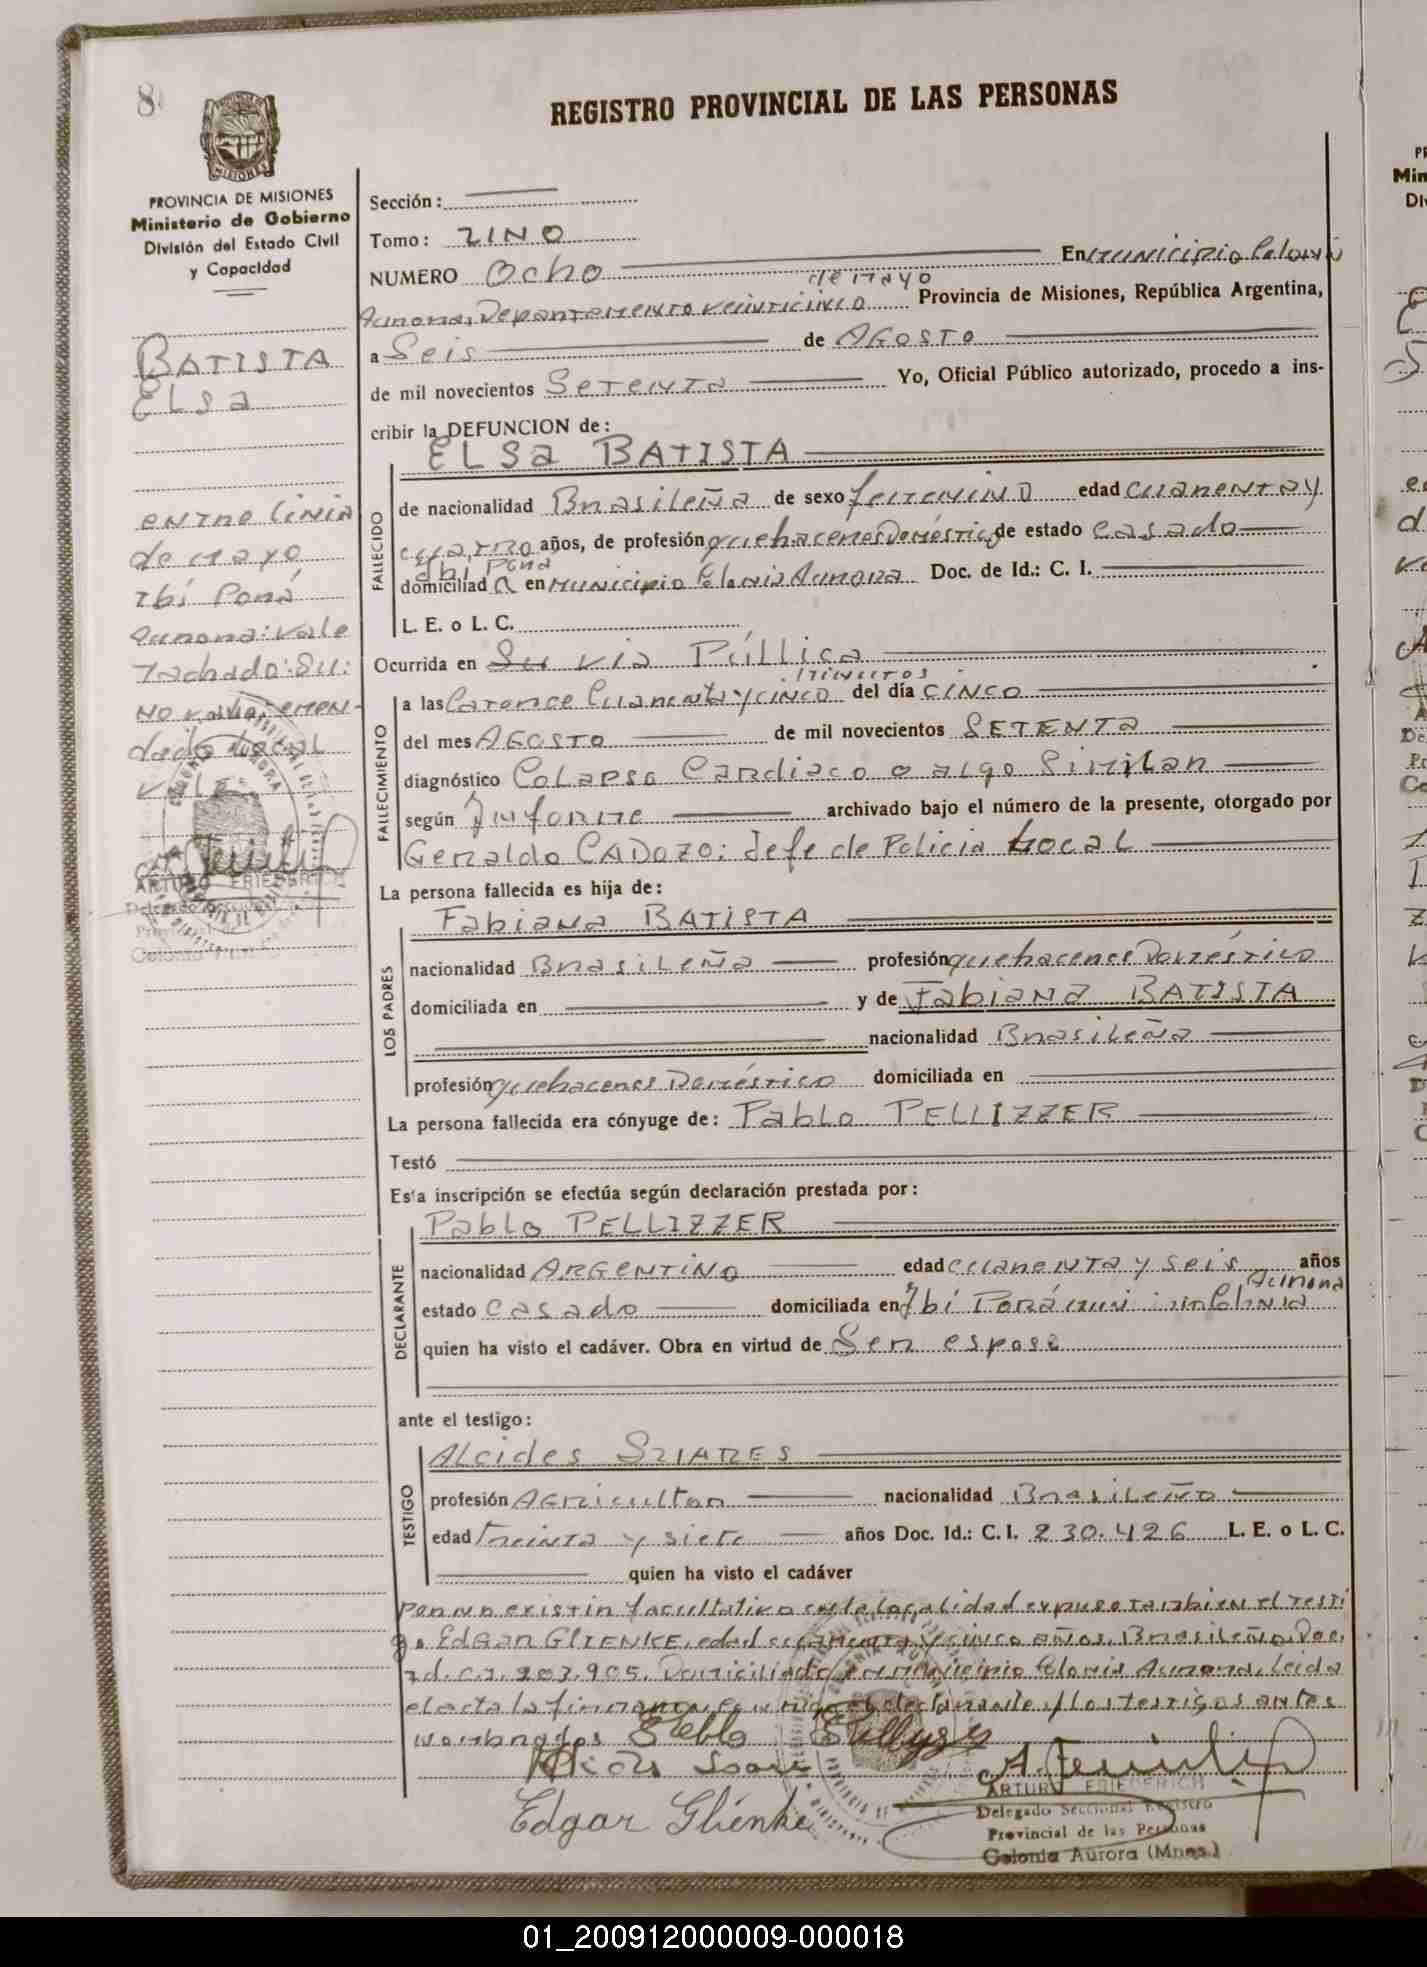 8
REGISTRO PROVINCIAL DE LAS PERSONAS
MISIONES
PROVINCIA DE MISIONES
Ministerio de Gobierno
División del Estado Civil
y Capacidad
BATISTA
ELSa
entre linia
de mayo
Ibí Porá
Aurora: Vale
Tachado: Su:
No vale, emen-
dado Local
vale
ARTURO FRIEDERICH
Delegado Seccional
Colonia
Sección:
Tomo: UNO
NUMERO Ocho En Municipio Colonia
de Mayo
Aurora, Departamento Veinticinco Provincia de Misiones, República Argentina,
a Seis de AGOSTO
de mil novecientos SETENTA Yo, Oficial Público autorizado, procedo a ins-
cribir la DEFUNCION de:
ELSa BATISTA
FALLECIDO
de nacionalidad Brasileña de sexo femenino edad cuarenta y
cuatro años, de profesión quehaceres Doméstico de estado Casado
Ibí Porá
domiciliad a en Municipio Colonia Aurora Doc. de Id.: C. I.
L. E. o L. C.
Ocurrida en Su via Púllica
minutos
FALLECIMIENTO
a las Catorce Cuarenta y cinco del día CINCO
del mes AGOSTO de mil novecientos SETENTA
diagnóstico Colapso Cardiaco o algo Similar
según Informe archivado bajo el número de la presente, otorgado por
Geraldo CADOZO: Jefe de Policia Local
La persona fallecida es hija de:
Fabiana BATISTA
LOS PADRES
nacionalidad Brasileña profesión quehaceres Doméstico
domiciliada en y de Fabiana BATISTA
nacionalidad Brasileña
profesión quehaceres Doméstico domiciliada en
La persona fallecida era cónyuge de: Pablo PELLIZZER
Testó
Esta inscripción se efectúa según declaración prestada por:
Pablo PELLIZZER
DECLARANTE
nacionalidad ARGENTINO edad cuarenta y seis años
Aurora
estado Casado domiciliada en Ibí Porá Colonia
quien ha visto el cadáver. Obra en virtud de Ser esposo
ante el testigo:
Alcides SUARES
TESTIGO
profesión Agricultor nacionalidad Brasileño
edad treinta y siete años Doc. Id.: C. I. 230.426 L. E. o L. C.
quien ha visto el cadáver
por no existir facultativo en la localidad expuso tambien el testi
go EDGAR GLIENKE, edad cuarenta y cinco años, Brasileño. Doc.
Id. C.I. 203.905. Domiciliado en Municipio Colonia Aurora. Leida
el acta la firman con migo el declarante y los testigos antes
nombrados Pablo Pellyzer
Edgar Glienke
ARTURO FRIEDERICH
Delegado Seccional Registro
Provincial de las Personas
Colonia Aurora (Mnes.)
01_200912000009-000018